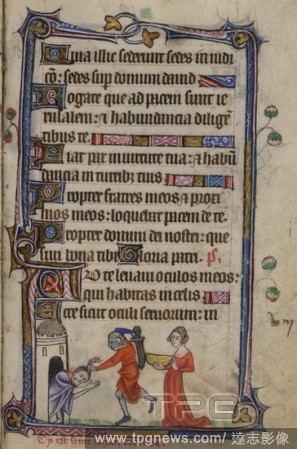 Quia illic sederunt sedes in iudi
cio: sedes sup domum dauid
Rogate que ad pacem sunt ie
rusalem: et habundancia diligen
tibus te.
Fiat pax in uirtute tua: et habun
dancia in turribus tuis
Propter fratres meos et proxi
mos meos: loquebar pacem de te.
Propter domum dei nostri: que
siui bona tibi Gloria patri. ps.
Ad te leuaui oculos meos:
qui habitas in celis
Ecce sicut oculi seruorum: in
TPG
www.tpgnews.com/ 達志影像